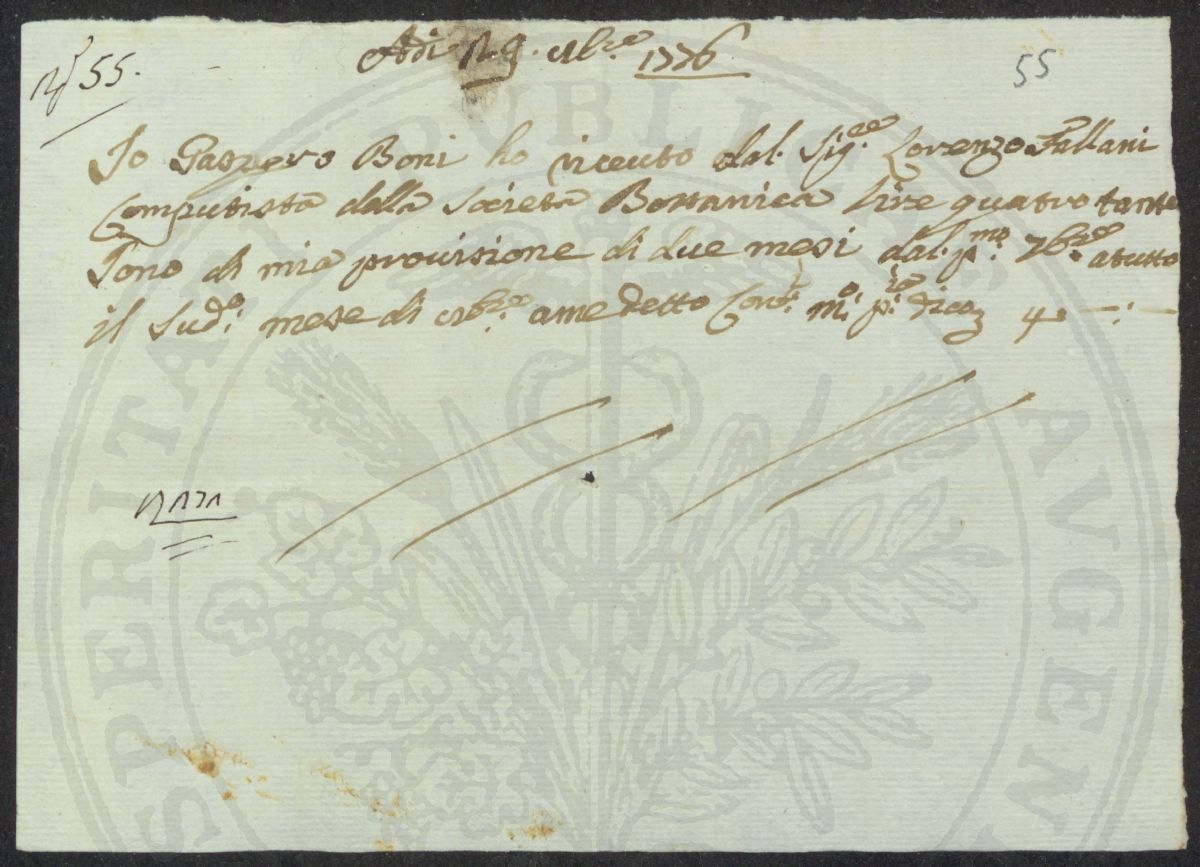 Adi 29. 8bre 1776
N 55.
55
Io Gaspero Boni ho riceuto dal. Sigre. Lorenzo Fallani
Computista della Società Bottanica Lire quatro tante
sono di mia provisione di due mesi dal. pmo. 7bre. atutto
il Sudo. mese di 8bre. ame detto Cont. mo. pa. dico 4 —:—
PROSPERITATI PUBLICAE AUGENDAE